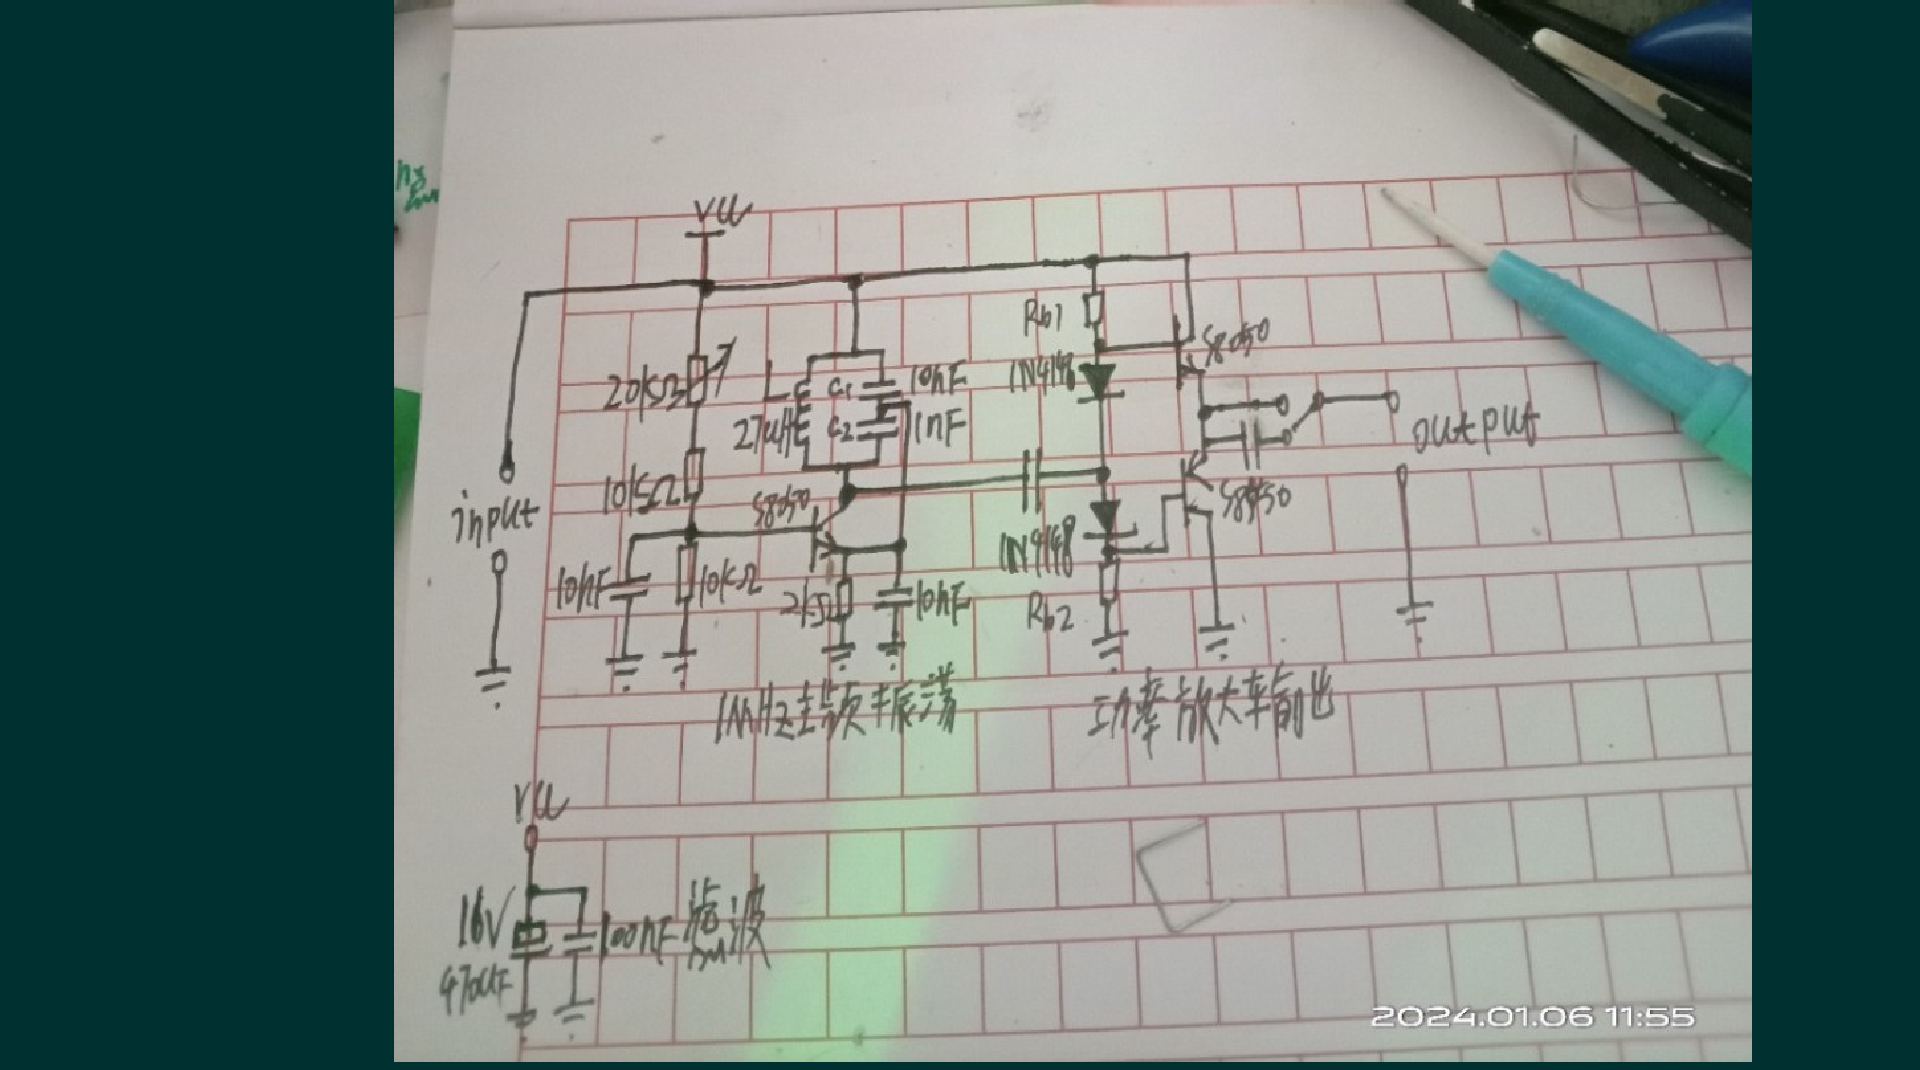 VCC
20kΩ
L
27uH
C1
10nF
C2
1nF
Rb1
1N4148
S8050
10kΩ
S8050
input
output
10nF
10kΩ
2kΩ
10nF
1N4148
S8550
Rb2
1MHz主频振荡
功率放大输出
VCC
16V
470uF
100nF
滤波
2024.01.06 11:55